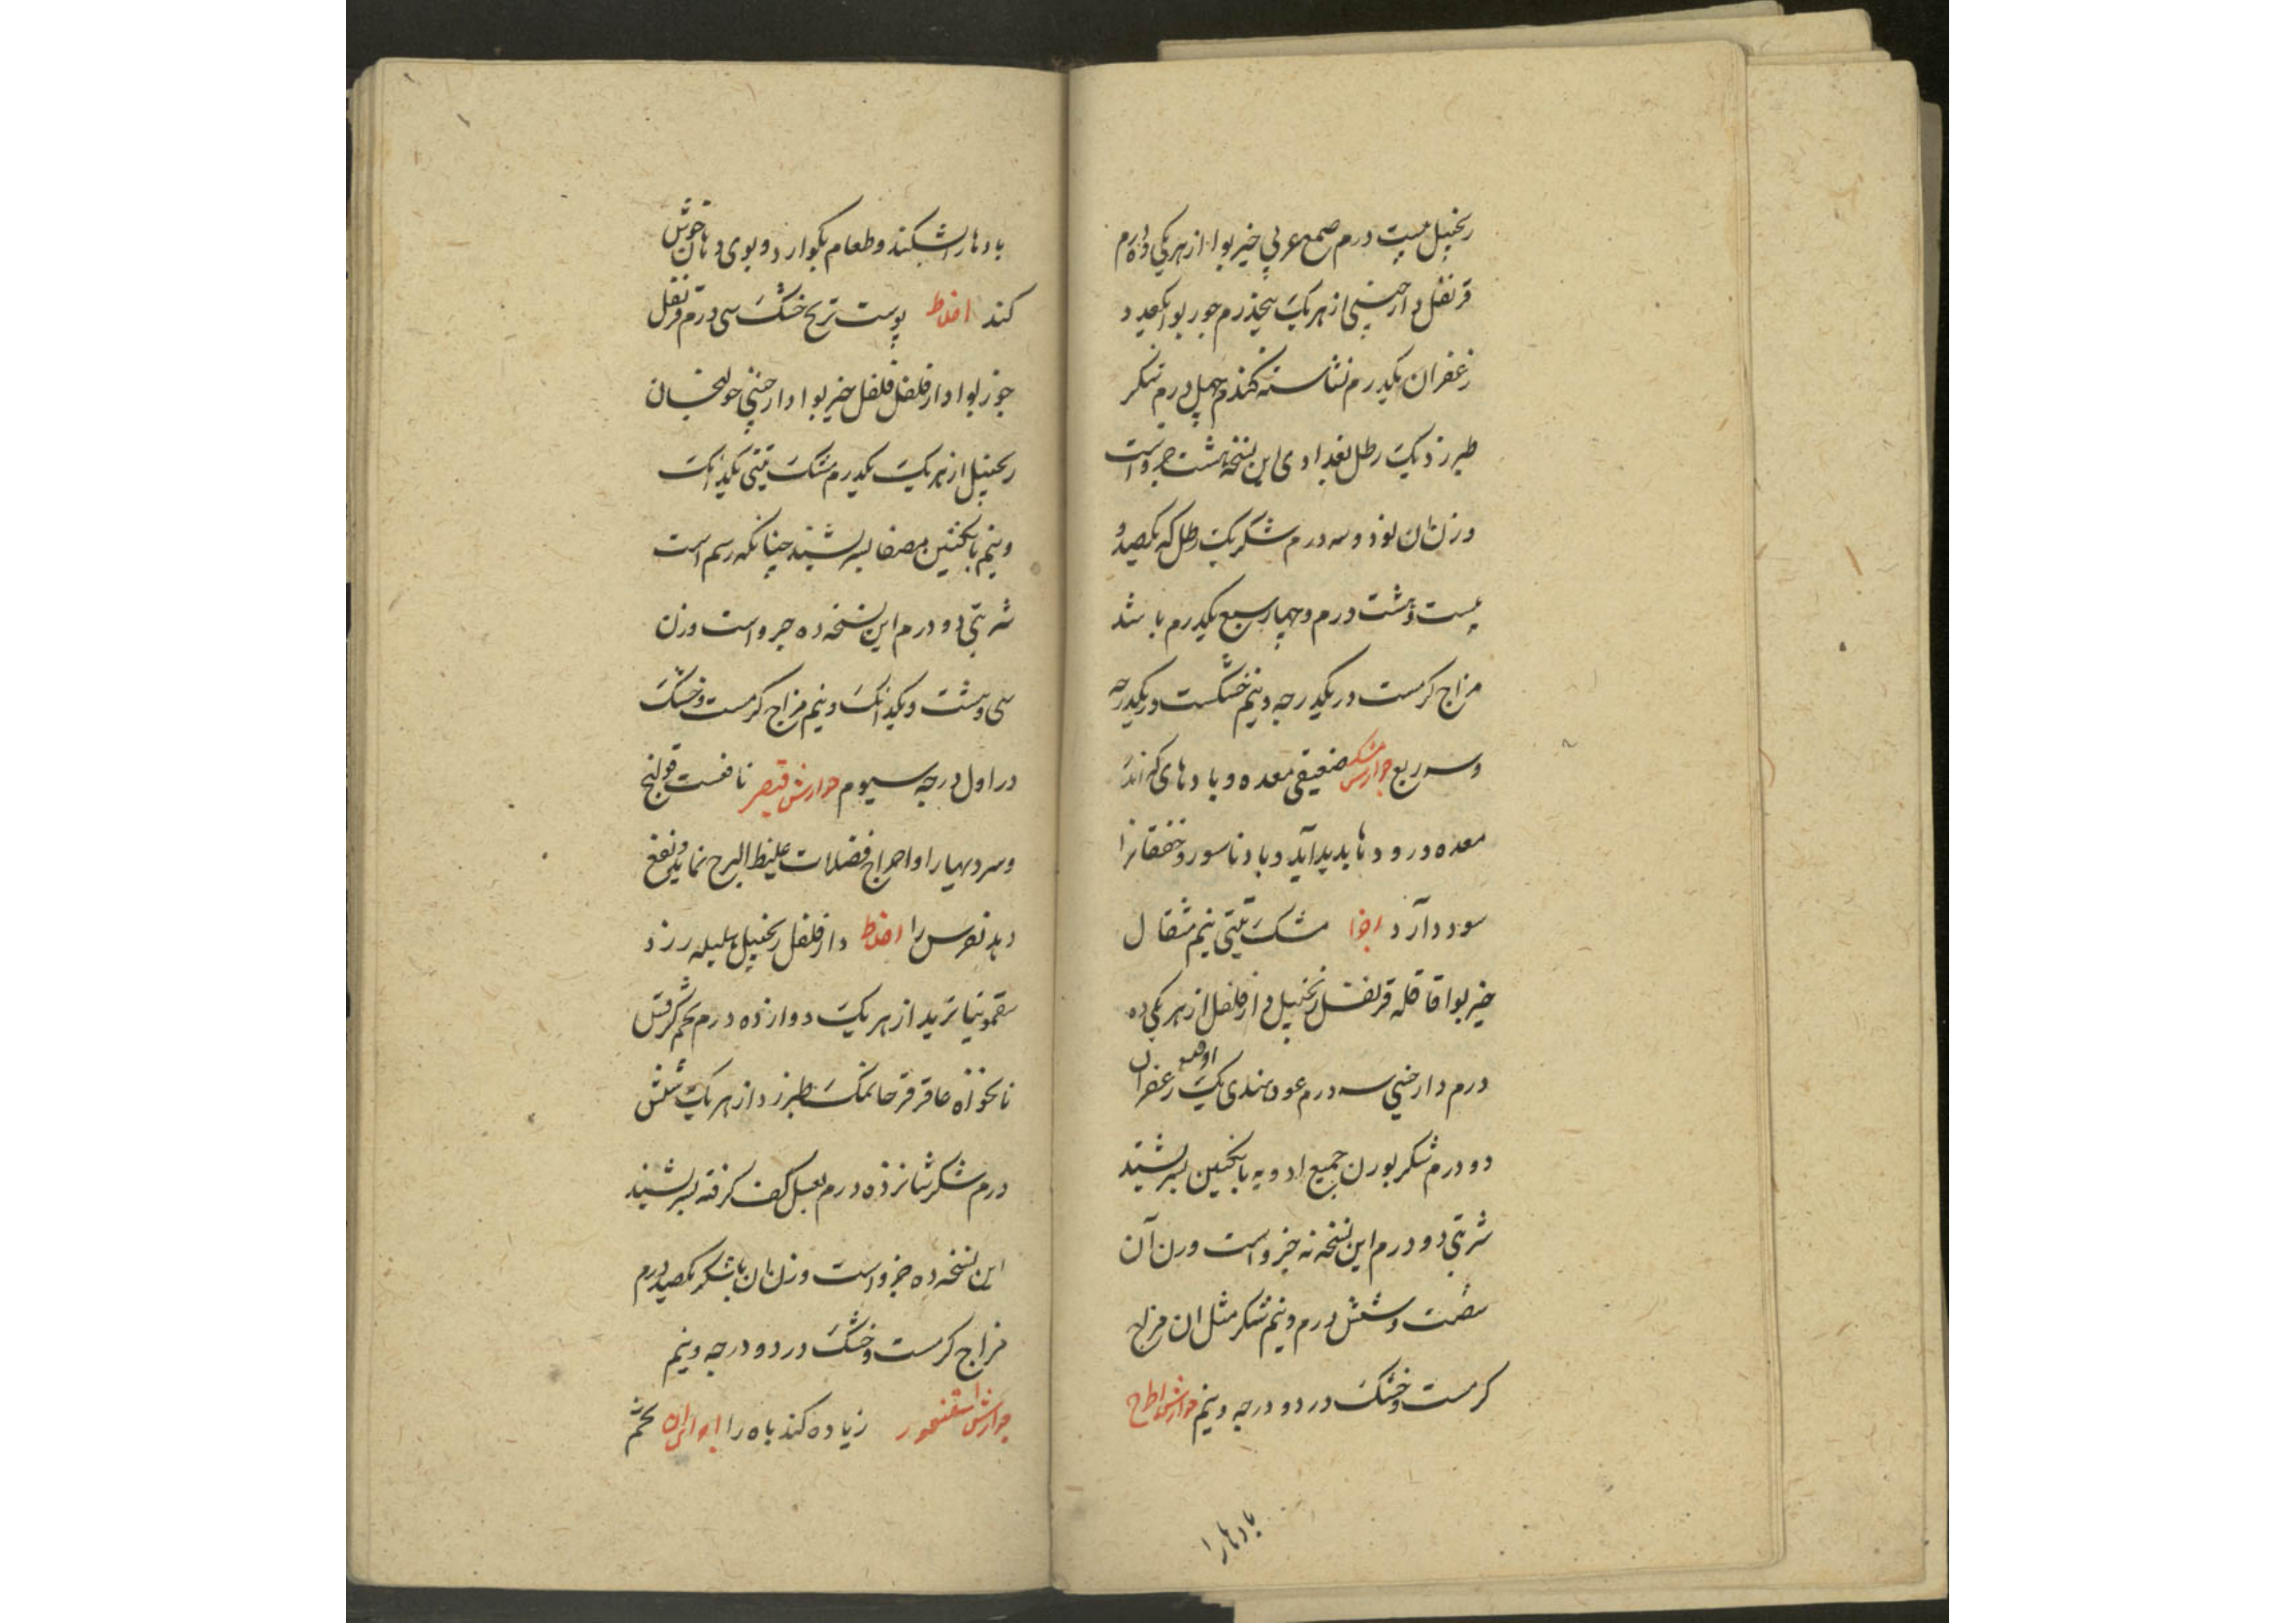 زنجبیل بیست درم صمغ عربی خیربوا از هر یکی ده درم
قرنفل دارچینی از هر یک پنجدرم جوربوا یکعدد
زعفران یکدرم نشاسته گندم چهل درم شکر
طبرزد یک رطل بغدادی این نسخه هشت جزواست
وزن ان نود و سه درم شکر یک رطل که یکصد و
بیست و هشت درم و چهار سبع یکدرم باشد
مزاج کرمست در یکدرجه و نیم خشکست در یکدرجه
و سه ربع جوارش مشک ضعیفی معده و بادهای که اندر
معده و رودها پدید آید و باد ناسور و خفقانرا
سود دارد اجزا مشک تبتی نیم مثقال
خیربوا قاقله قرنفل زنجبیل دارفلفل از هر یکی ده
درم دارچینی سه درم عود هندی یک اوقیه زعفران
دو درم شکر بوزن جمیع ادویه بانکبین بسرشند
شربتی دو درم این نسخه نه جزواست وزن آن
شصت و شش درم و نیم شکر مثل ان مزاج
کرمست و خشک در دو درجه و نیم جوارش اطرج
بادهارا
بادهارا بشکند و طعام بکوارد و بوی دهان خوش
کند اخلاط پوست ترنج خشک سی درم قرنفل
جوزبوا دارفلفل فلفل خیربوا دارچینی خولنجان
زنجبیل از هر یک یکدرم مشک تبتی یکدانک
و نیم بانکبین مصفا بسرشند چنانکه رسم است
شربتی دو درم این نسخه ده جزواست وزن
سی و هشت و یکدانک و نیم مزاج کرمست و خشک
در اول درجه سیوم جوارش قیصر نافعست قولنج
و سردیهارا و اخراج فضلات غلیظ الزج نماید و نفع
دهد نقرس را اخلاط دارفلفل زنجبیل هلیله زرد
سقمونیا تربد از هر یک دوازده درم تخم کرفس
نانخواه عاقرقرحا نمک طبرزد از هر یک شش
درم شکر شانزده درم بعسل کف کرفته بسرشند
این نسخه ده جزواست وزن ان باشکر یکصد درم
مزاج کرمست و خشک در دو درجه و نیم
جوارش اسقنقور زیاده کند باه را تخم